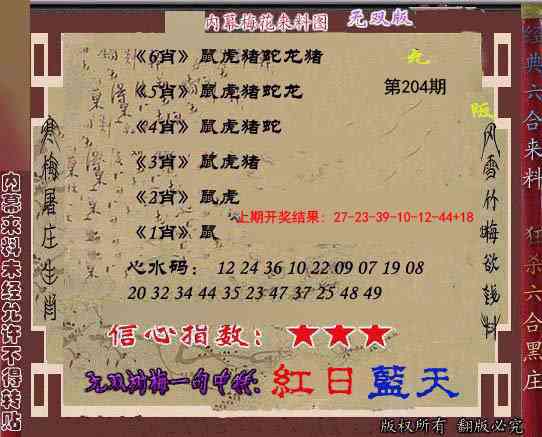 内幕梅花来料图 无双版
《6肖》鼠虎猪蛇龙猪
《5肖》鼠虎猪蛇龙
第204期
《4肖》鼠虎猪蛇
《3肖》鼠虎猪
《2肖》鼠虎
上期开奖结果：27-23-39-10-12-44+18
《1肖》鼠
心水码： 12 24 36 10 22 09 07 19 08
20 32 34 44 35 23 47 37 25 48 49
信心指数：★★★
紅日藍天
版权所有 翻版必究
寒梅屠庄生肖
内幕来料未经允许不得转贴
经典六合来料 狂杀六合黑庄